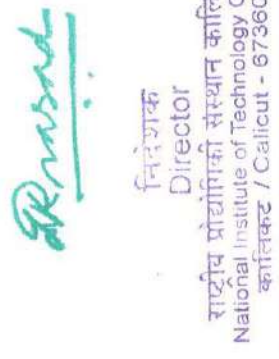 निदेशक
Director
राष्ट्रीय प्रौद्योगिकी संस्थान कालि
National Institute of Technology C
कालिकट / Calicut - 67360